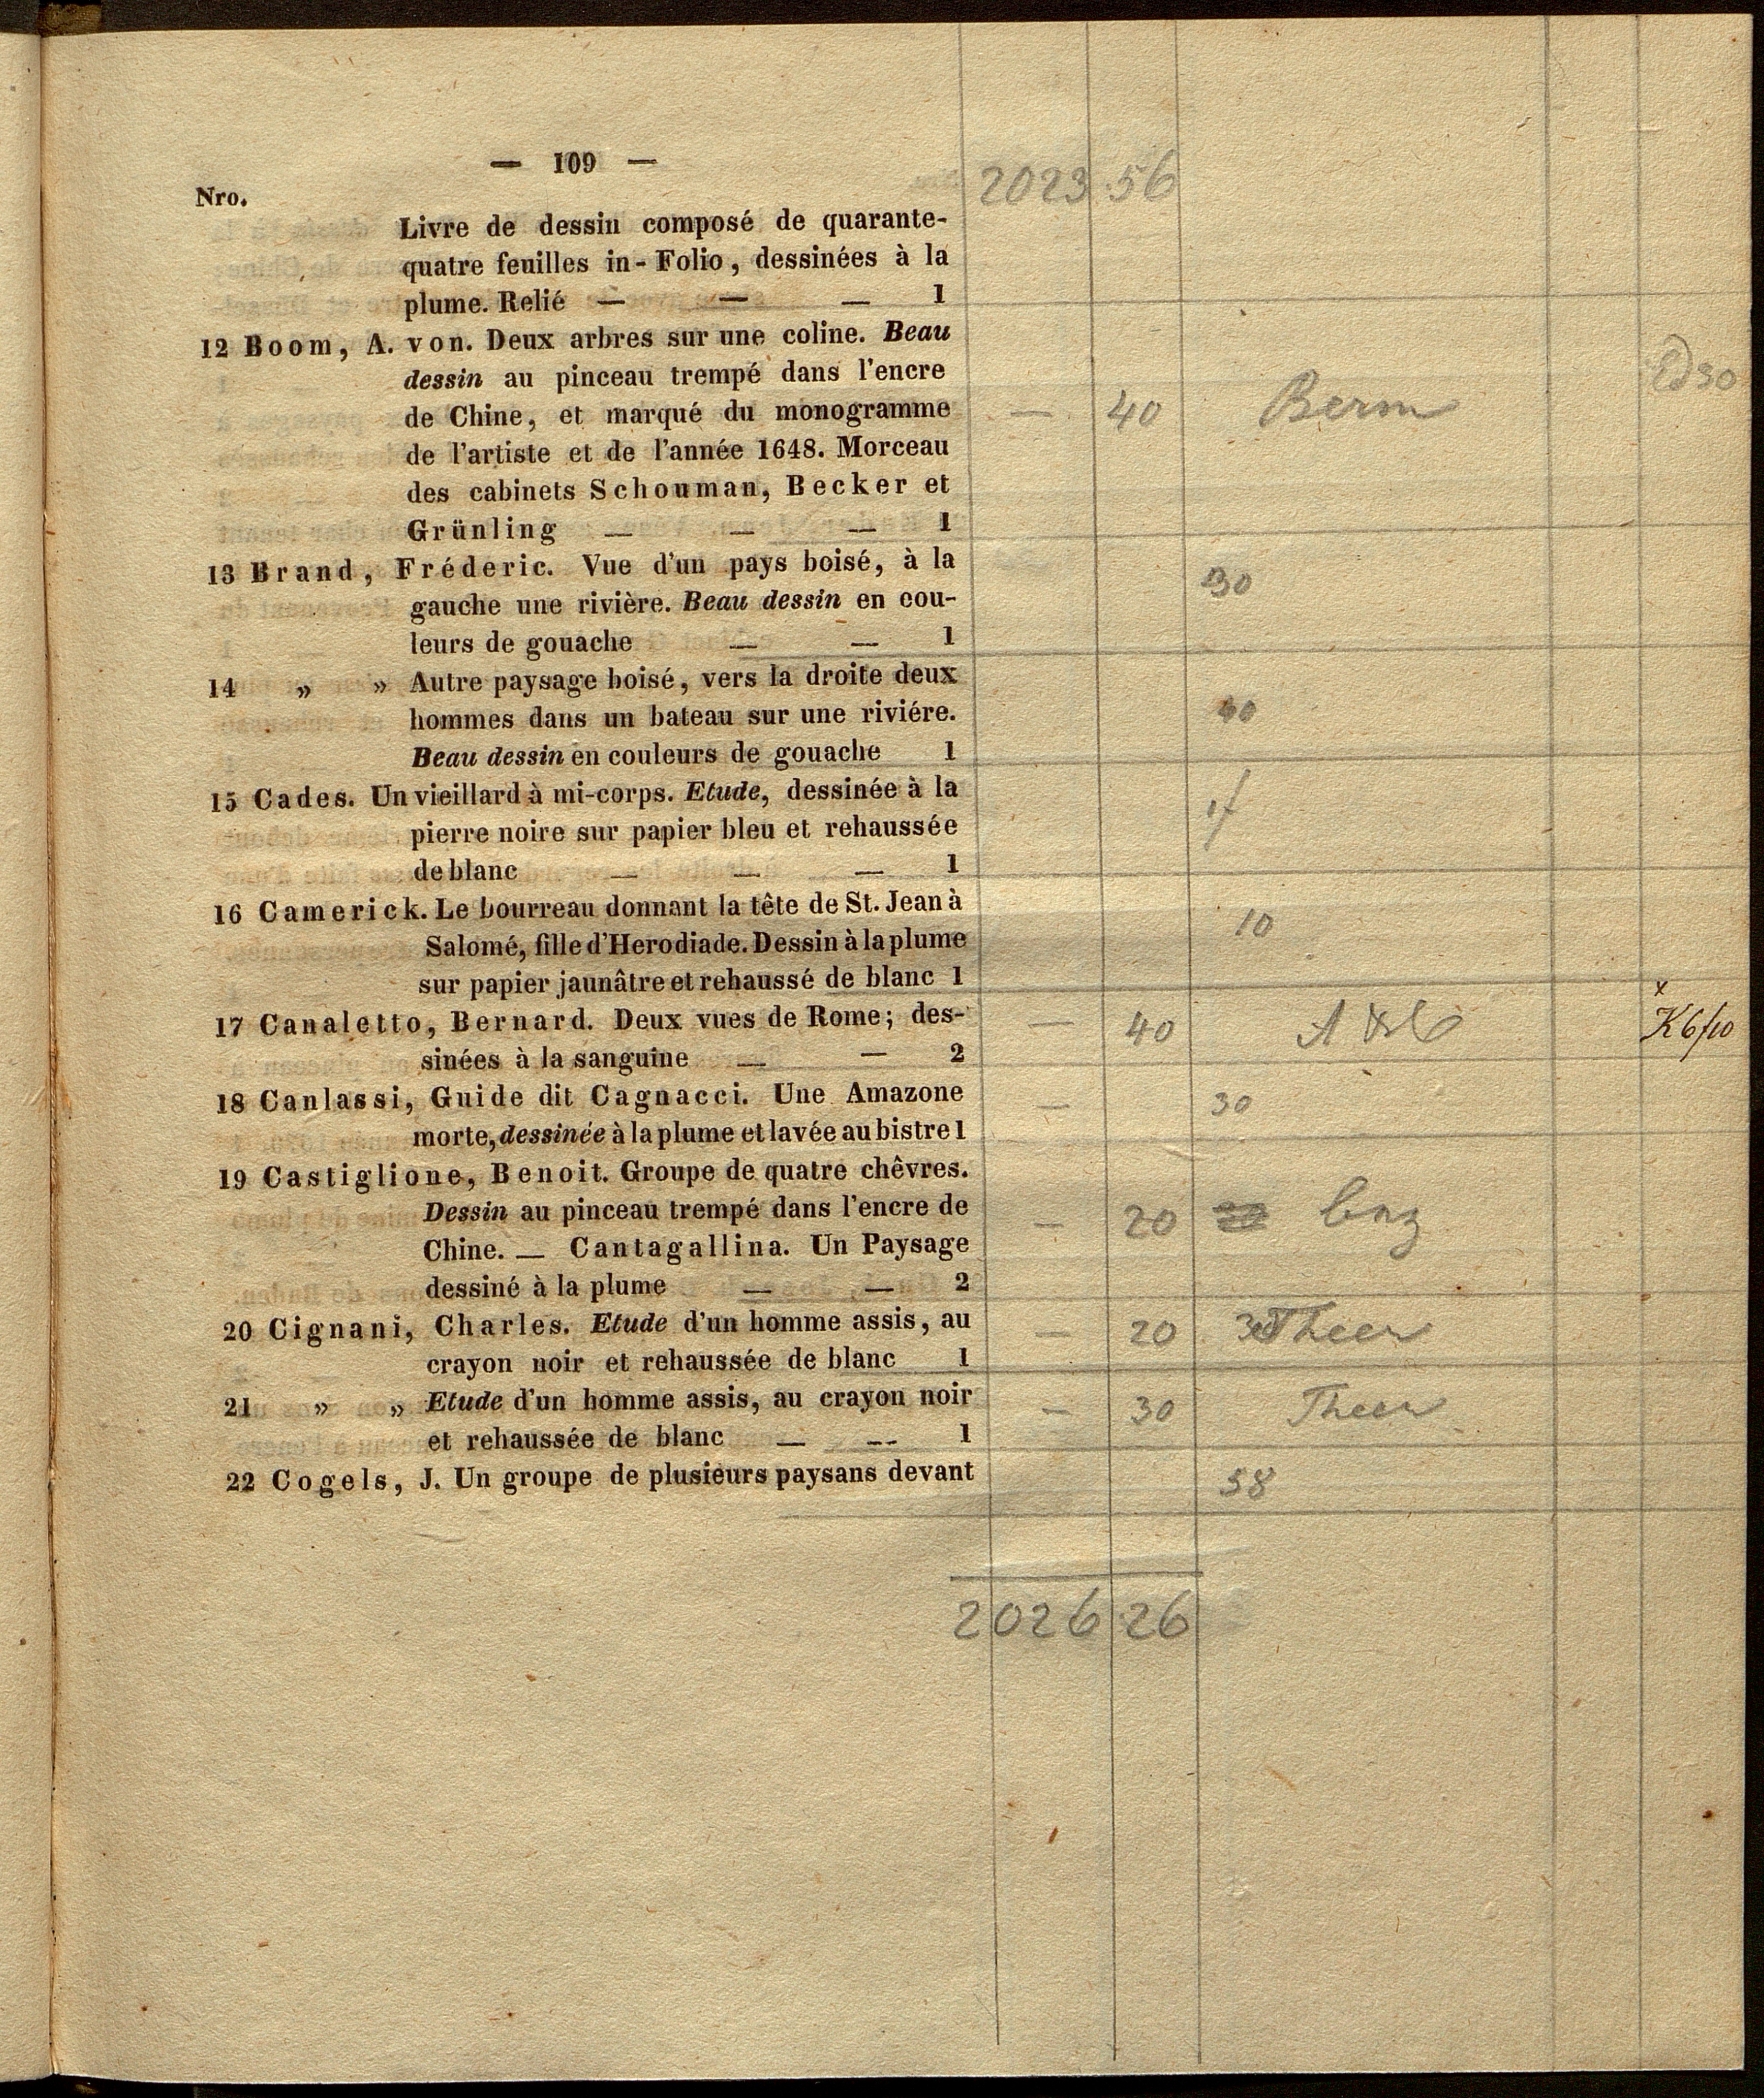 — 109 —
2023 56
Nro.
Livre de dessin composé de quarante-
quatre feuilles in-Folio, dessinées à la
plume. Relié — — — 1
12 Boom, A. von. Deux arbres sur une coline. Beau
dessin au pinceau trempé dans l'encre
de Chine, et marqué du monogramme — 40
de l'artiste et de l'année 1648. Morceau
des cabinets Schouman, Becker et
Grünling — — — 1
13 Brand, Fréderic. Vue d'un pays boisé, à la 30
gauche une rivière. Beau dessin en cou-
leurs de gouache — — 1
14 » » Autre paysage boisé, vers la droite deux
hommes dans un bateau sur une riviére. 40
Beau dessin en couleurs de gouache 1
15 Cades. Un vieillard à mi-corps. Etude, dessinée à la
pierre noire sur papier bleu et rehaussée
de blanc — — — 1
16 Camerick. Le bourreau donnant la tête de St. Jean à 10
Salomé, fille d'Herodiade. Dessin à la plume
sur papier jaunâtre et rehaussé de blanc 1
17 Canaletto, Bernard. Deux vues de Rome; des- — 40
sinées à la sanguine — — 2
18 Canlassi, Guide dit Cagnacci. Une Amazone — 30
morte, dessinée à la plume et lavée au bistre 1
19 Castiglione, Benoit. Groupe de quatre chêvres.
Dessin au pinceau trempé dans l'encre de — 20
Chine. — Cantagallina. Un Paysage
dessiné à la plume — — 2
20 Cignani, Charles. Etude d'un homme assis, au — 20 Theer
crayon noir et rehaussée de blanc 1
21 » » Etude d'un homme assis, au crayon noir — 30 Theer
et rehaussée de blanc — — 1
22 Cogels, J. Un groupe de plusieurs paysans devant 58
2026 26